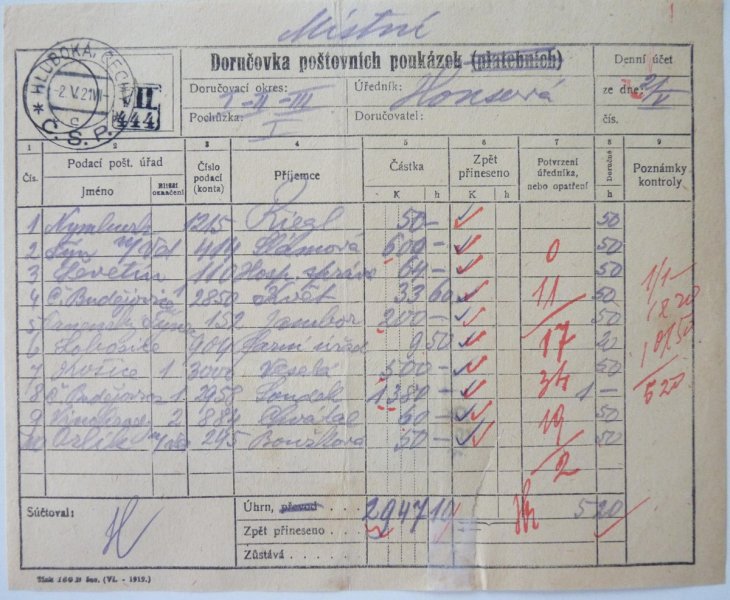 Místní
HLUBOKÁ, ČECHY
-2.V.21VII-
c
Č.S.P.
VII.
444
Doručovka poštovních poukázek (platebních)
Denní účet
Doručovací okres:
I-II-III
Úředník: Honsová
ze dne: 2/V
Pochůzka: I
Doručovatel:
čís.
1 2 3 4 5 6 7 8 9
Čís. Podací pošt. úřad Číslo podací (konta) Příjemce Částka Zpět přineseno Potvrzení úředníka, nebo opatření Doručné Poznámky kontroly
Jméno Bližší označení K h K h h
1 Nymburk 1215 Riegl 50 - 50
2 Týn n/Vlt 414 Slámová 600 - 0 50
3 Levetín 110 Hosp. správa 64 - 50 1/1-
4 Č Budějovice 1 2850 Květ 33 60 11 50
5 152 Jambor 200 - 50
6 904 9 50 17
7 Košice 1 Veselá 500 - 34 50 520
8 Č Budějovice 1 2958 Soudek 1380 - 1 -
9 2 884 Chvátal 60 - 19 50
10 Orlík n/Vlt 245 Bouzková 50 - 2 50
Súčtoval:
Úhrn, převod 2947 10 5 20
Zpět přineseno
Zůstává
Tisk 160 B šes. (VI. - 1919.)